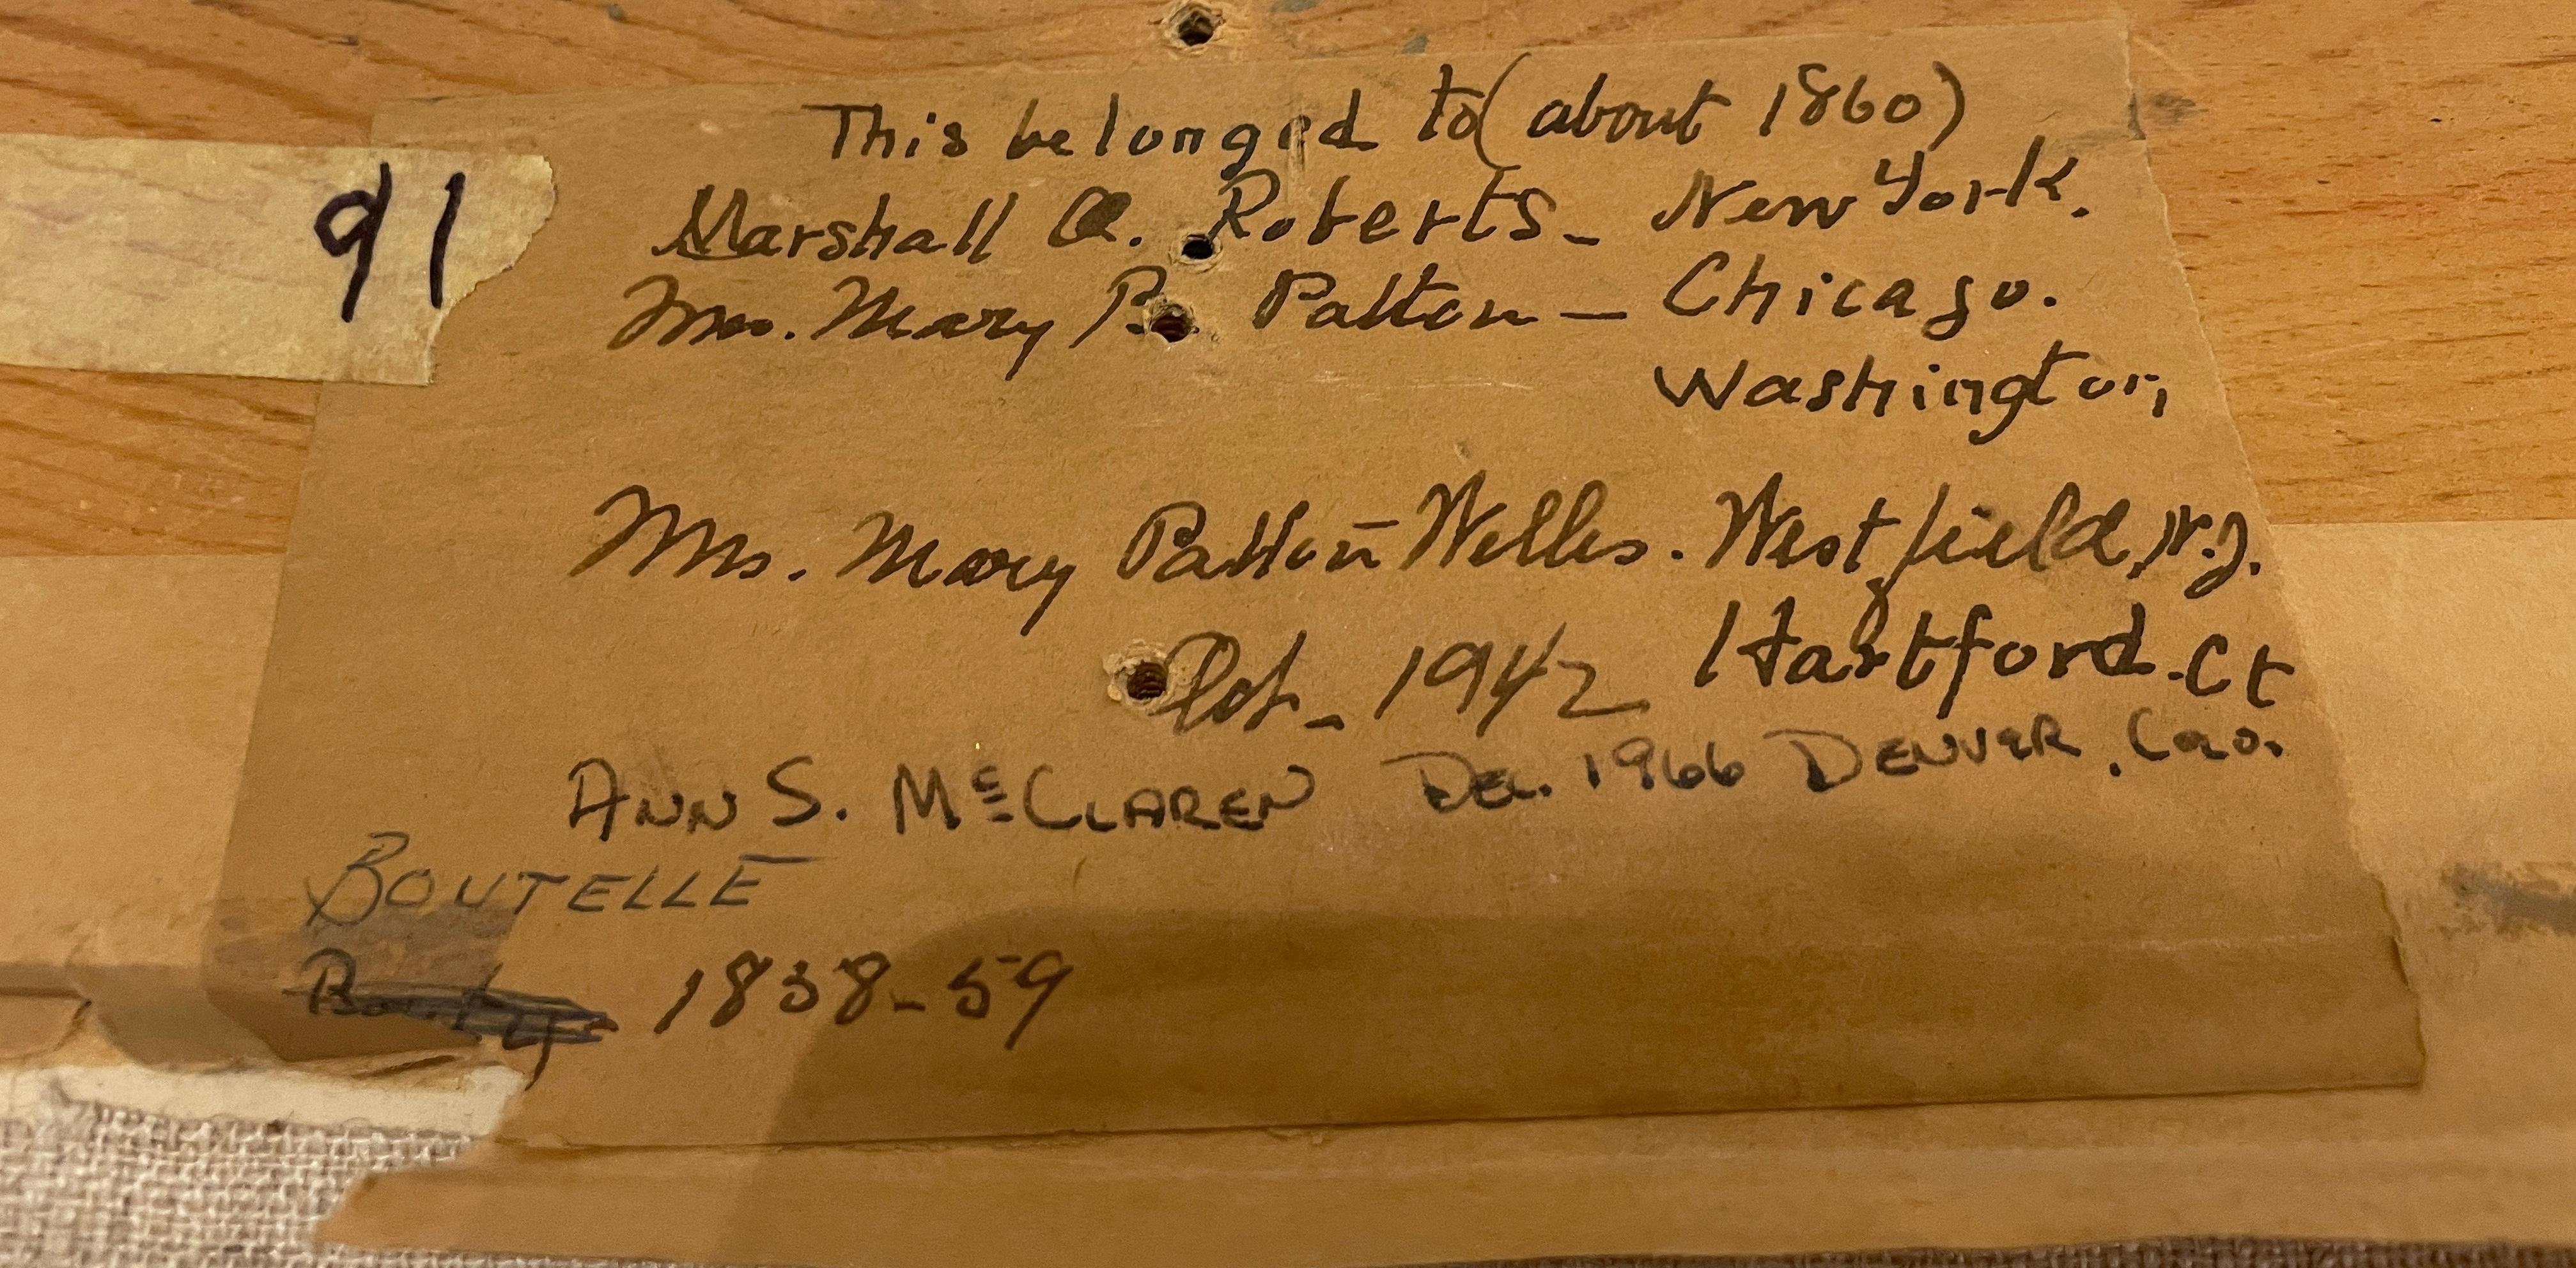 This belonged to (about 1860)
91
Marshall O. Roberts - New York.
Mrs. Mary P. Patton - Chicago.
Washington
Mrs. Mary Patton Welles. Westfield, N.J.
Oct - 1942 Hartford. Ct
ANN S. McCLAREN DEC. 1966 DENVER, COLO.
BOUTELLE
1858-59